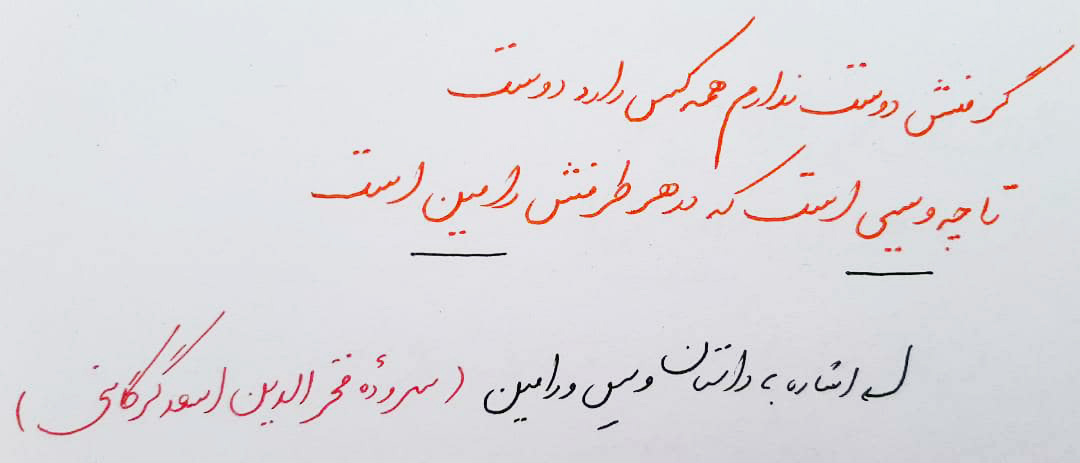 گر منش دوست ندارم همه کس دارد دوست
تا چه ویسی است که در هر طرفش رامین است
اشاره به داستان ویسِ و رامین (سرودهٔ فخرالدین اسعد گرگانی)